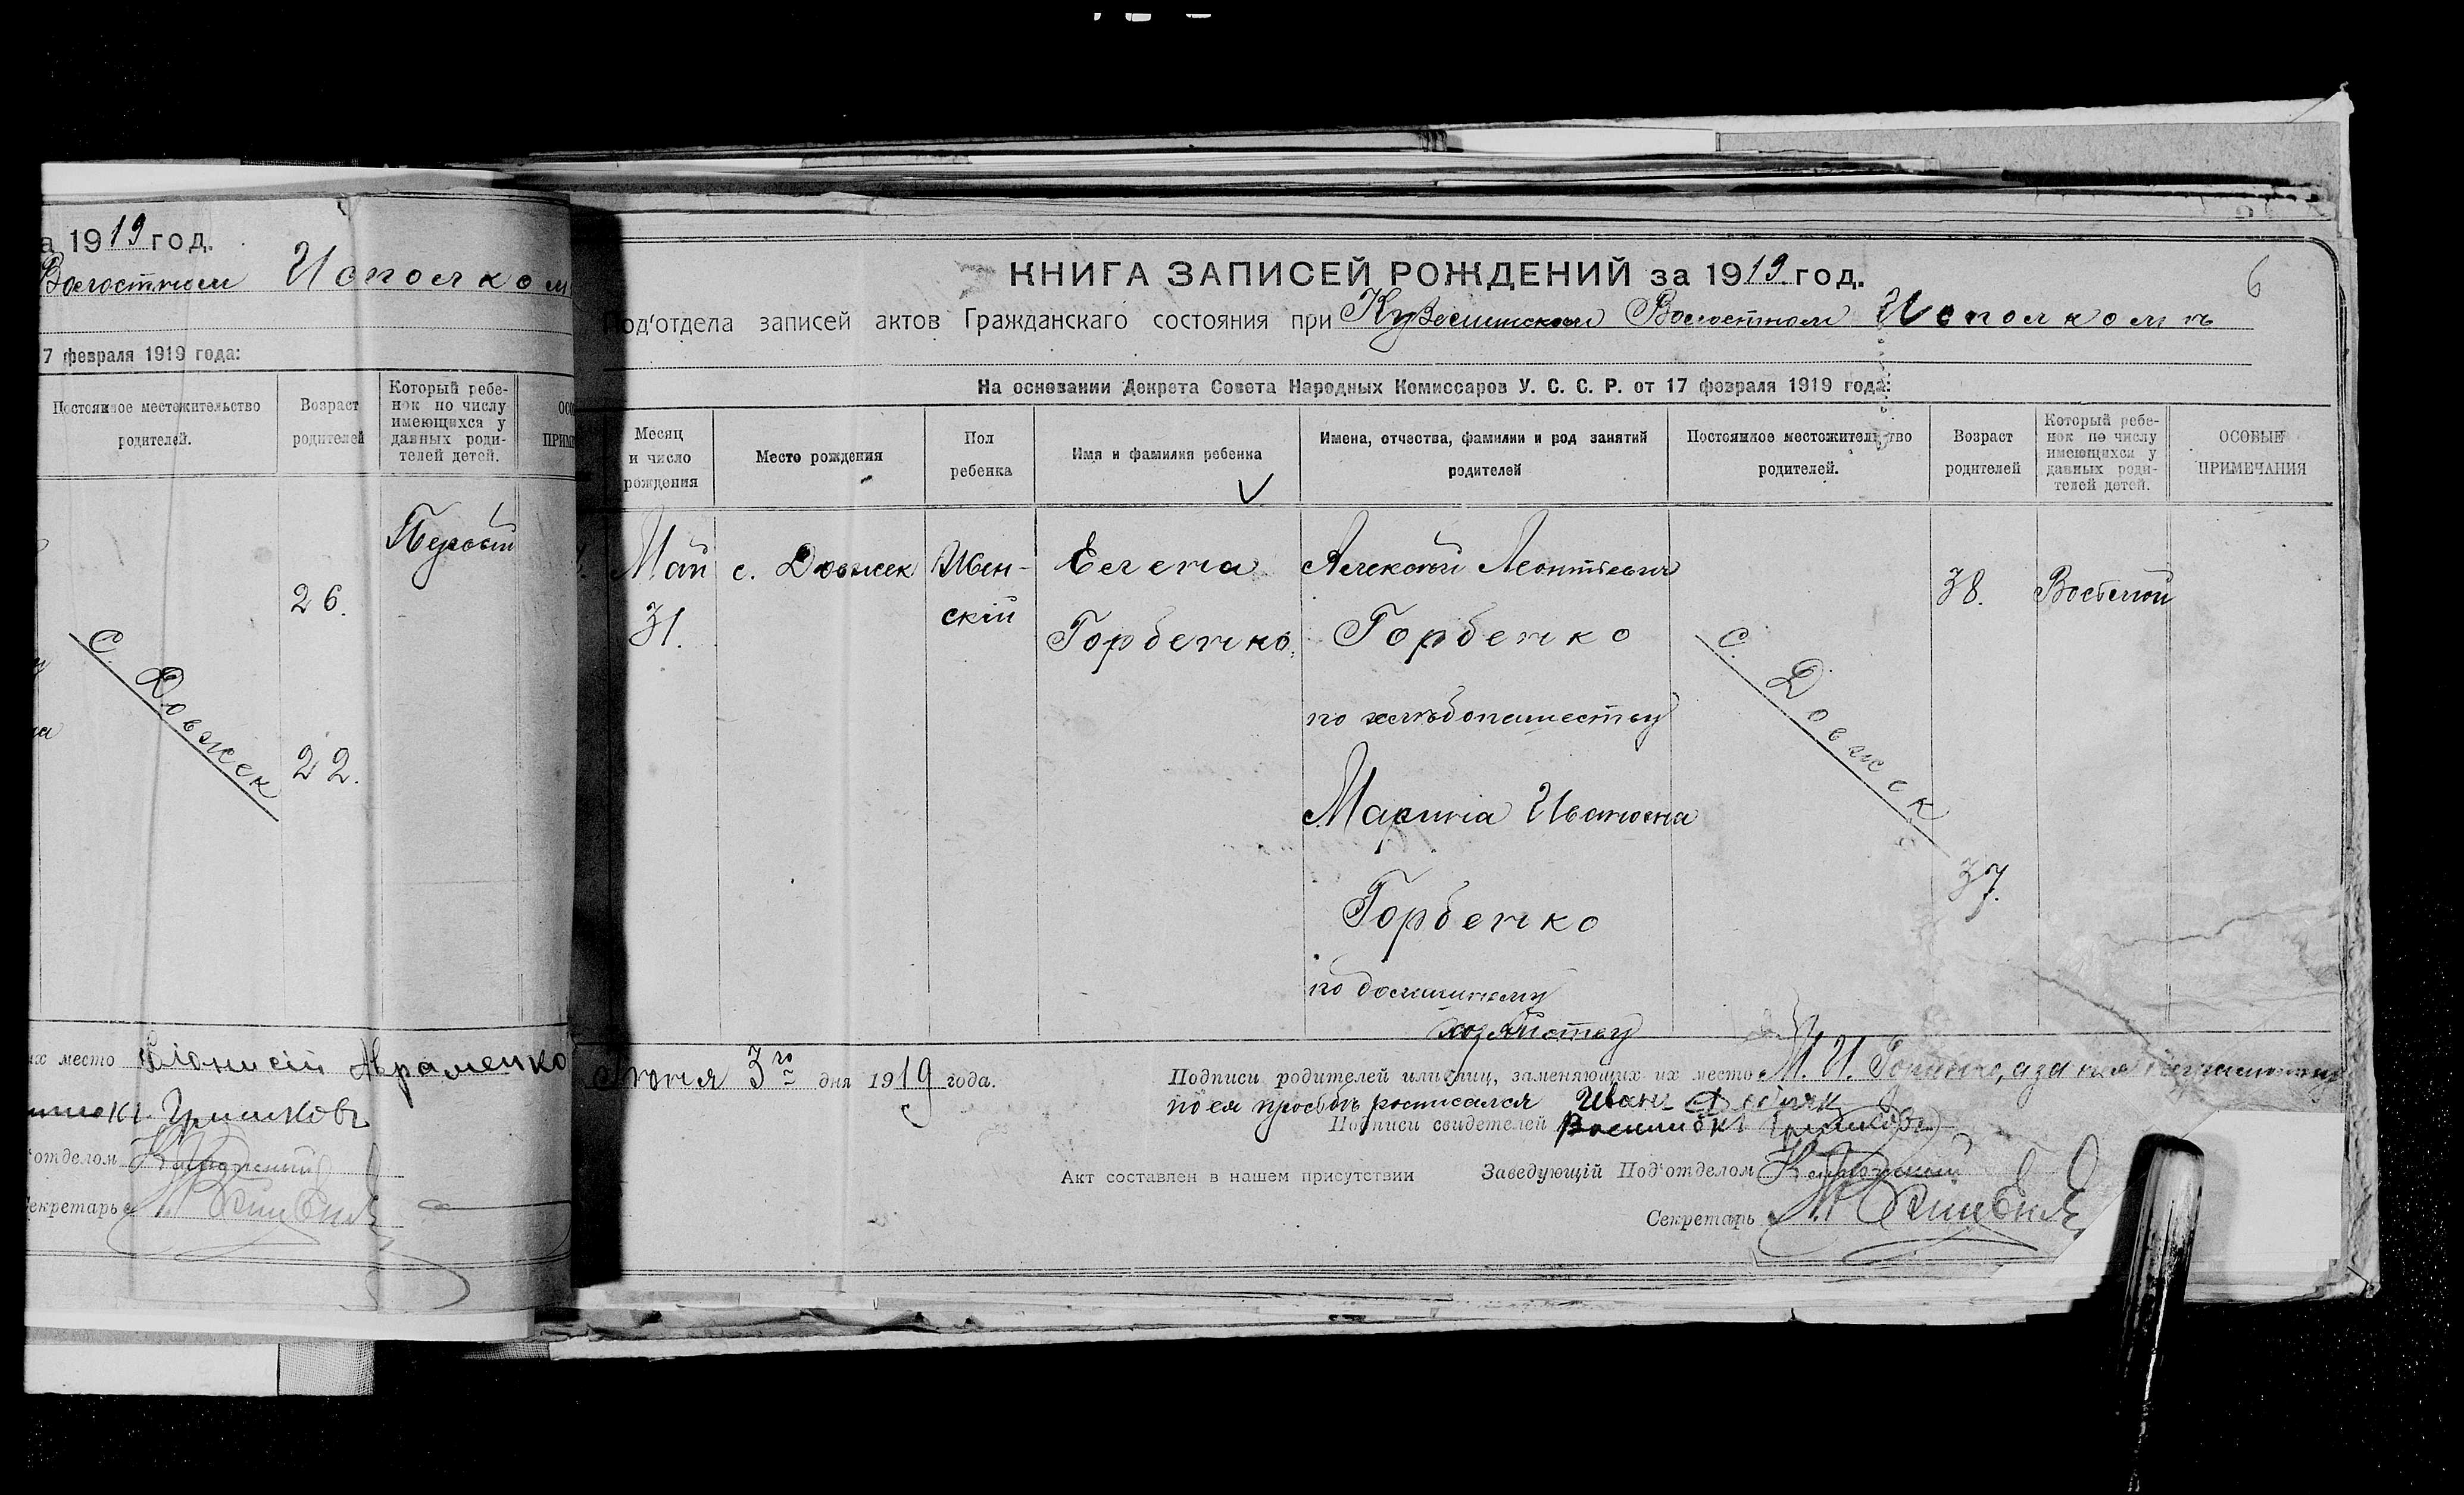 а 1919 год.
Волостном Исполком
7 февраля 1919 года:
Постоянное местожительство
родителей.
Возраст
родителей
Который ребе-
нок по числу
имеющихся у
данных роди-
телей детей.
Первый
26.
с. Довжек
22.
их место Діонисій Авраменко
Гришковъ
отделом
Секретарь
6
КНИГА ЗАПИСЕЙ РОЖДЕНИЙ за 1919 год.
Под'отдела записей актов Гражданскаго состояния при Волостном Исполкомъ
На основании Декрета Совета Народных Комиссаров У. С. С. Р. от 17 февраля 1919 года:
Месяц
и число
рождения
Место рождения
Пол
ребенка
Имя и фамилия ребенка
Имена, отчества, фамилии и род занятий
родителей
Постоянное местожительство
родителей.
Возраст
родителей
Который ребе-
нок по числу
имеющихся у
данных роди-
телей детей.
ОСОБЫЕ
ПРИМЕЧАНИЯ
Май
31.
с. Довжек
Жен-
скій
Елена
Горбенко
Алексей Леонтіевич
Горбенко
по хлебопашеству
Марина Ивановна
Горбенко
по домашнему
хозяйству
с. Довжек
38.
37.
Восьмой
Іюня 3го дня 1919 года.
Подписи родителей или лиц, заменяющих их место М. И. Горбенко, а за нея неграмотную
по ея просьбѣ росписался Иван
Подписи свидетелей Гришковъ
Акт составлен в нашем присутствии
Заведующій Под'отделом
Секретарь